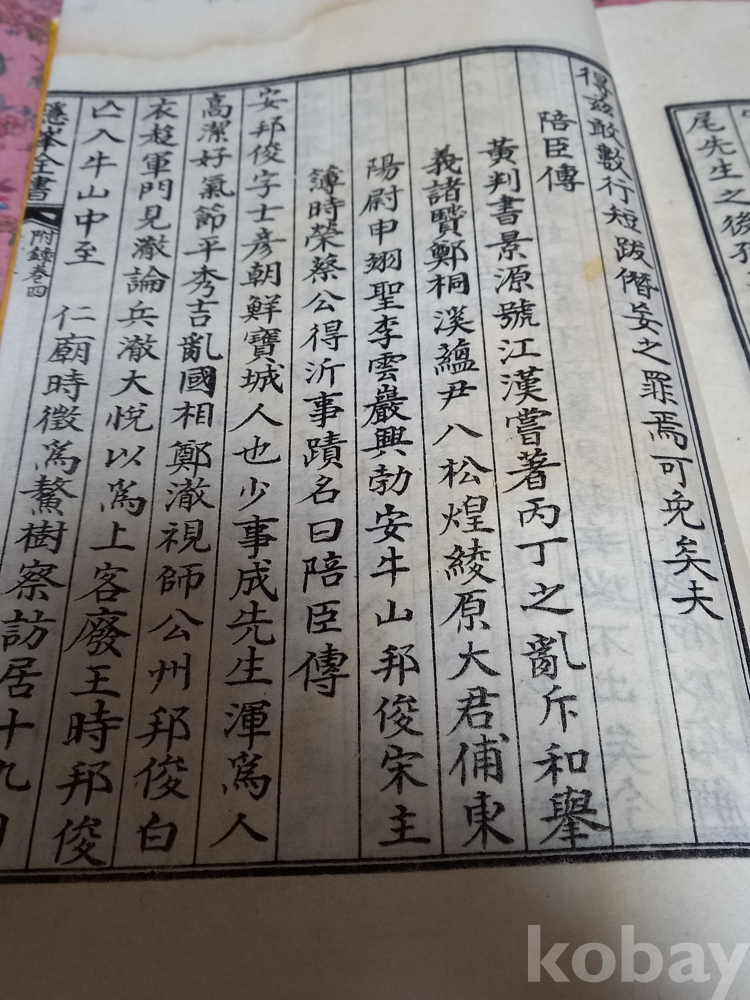 尾先生之後孫
得茲敢數行短跋僭妄之罪焉可免矣夫
陪臣傳
黃判書景源號江漢嘗著丙丁之亂斥和舉
義諸賢鄭桐溪蘊尹八松煌綾原大君俌東
陽尉申翊聖李雲巖興勃安牛山邦俊宋主
簿時榮蔡公得沂事蹟名曰陪臣傳
安邦俊字士彦朝鮮寶城人也少事成先生渾爲人
高潔好氣節平秀吉亂國相鄭澈視師公州邦俊白
衣趍軍門見澈論兵澈大悅以爲上客廢王時邦俊
亾入牛山中至 仁廟時徵爲鰲樹察訪居十九
隱峯全書 附錄卷四
kobay